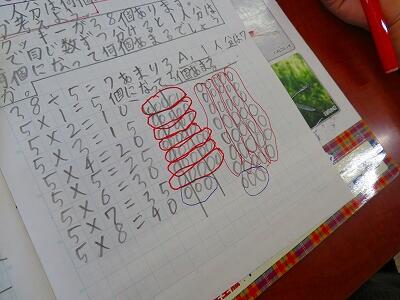 クッキーが38個あります
で同じ数ずつ分けると1人分は
何個になって何個あまるでしょう
か。
38÷5=7あまり3 A,1人分は7
個になって3個あまる
5×1=5
5×2=10
5×3=15
5×4=20
5×5=25
5×6=30
5×7=35
5×8=40